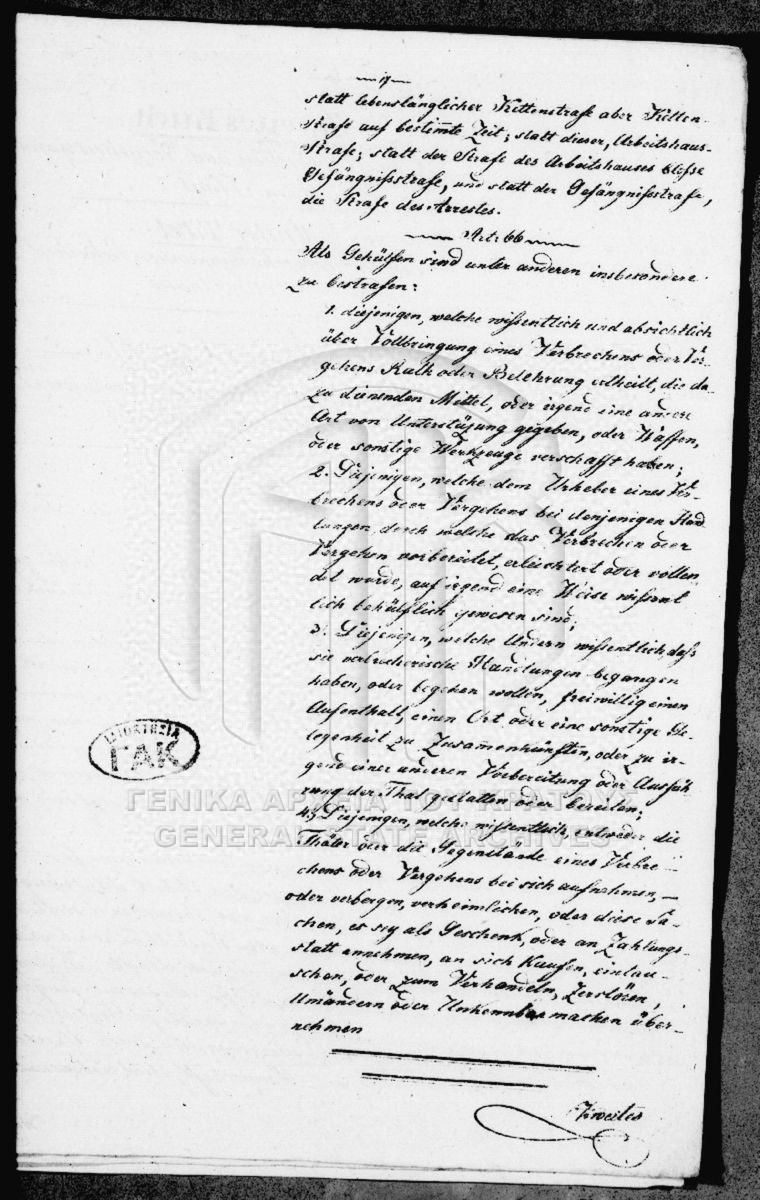 — 17 —
statt lebenslänglicher Kettenstrafe aber Ketten-
strafe auf bestim̄te Zeit; statt dieser, Arbeitshaus-
strafe; statt der Strafe des Arbeitshauses blosse
Gefängnißstrafe, und statt der Gefängnißstrafe,
die Strafe des Arrestes.
Art: 66
Als Gehülfen sind unter anderen insbesondere
zu bestrafen:
1. diejenigen, welche wissentlich und absichtlich
über Vollbringung eines Verbrechens oder Ver-
gehens Rath oder Belehrung ertheilt, die da-
zu dienenden Mittel, oder irgend eine andere
Art von Unterstüzung gegeben, oder Waffen,
oder sonstige Werkzeuge verschafft haben;
2. Diejenigen, welche dem Urheber eines Ver-
brechens oder Vergehens bei denjenigen Hand-
lungen, durch welche das Verbrechen oder
Vergehen vorbereitet, erleichtert oder vollen-
det wurde, auf irgend eine Weise wissent
lich behülflich gewesen sind;
3. Diejenigen, welche Andern wissentlich, daß
sie verbrecherische Handlungen begangen
haben, oder begehen wollen, freiwillig einen
Aufenthalt, einen Ort oder eine sonstige Ge-
legenheit zu Zusam̄enkünften, oder zu ir-
gend einer anderen Vorbereitung oder Ausfüh
rung der That gestatten oder bereiten;
4. Diejenigen, welche wissentlich, entweder die
Thäter oder die Gegenstände eines Verbre-
chens oder Vergehens bei sich aufnehmen, —
oder verbergen, verheimlichen, oder diese Sa-
chen, es sey als Geschenk, oder an Zahlungs-
statt annehmen, an sich kaufen, eintau-
schen, oder zum Verhandeln, Zerstören,
Umändern oder Unkennbar machen über-
nehmen
Zweites
ΓΑΚ
ΓΕΝΙΚΑ ΑΡΧΕΙΑ ΤΟΥ ΚΡΑΤΟΥΣ
GENERAL STATE ARCHIVES